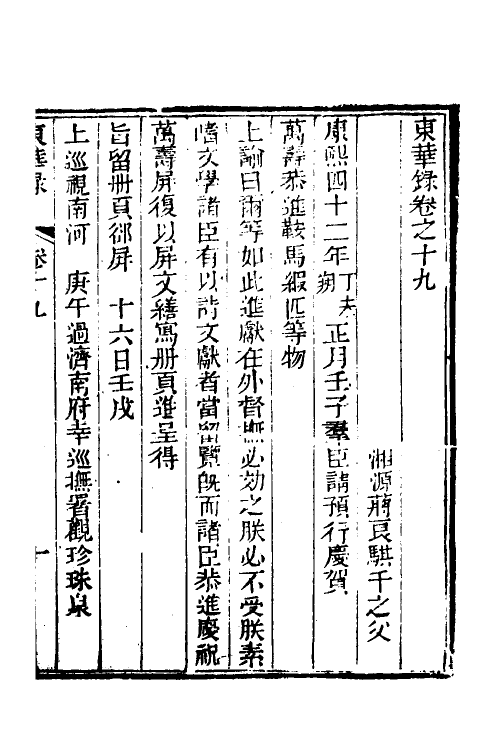 東華錄卷之十九
湘源蔣良騏千之父
康熙四十二年丁未朔正月壬子羣臣請預行慶賀
萬壽恭進鞍馬緞匹等物
上諭曰爾等如此進獻在外督撫必効之朕必不受朕素
嗜文學諸臣有以詩文獻者當留覽旣而諸臣恭進慶祝
萬壽屏復以屏文繕寫册頁進呈得
旨留册頁郤屏　十六日壬戌
上巡視南河　庚午過濟南府幸巡撫署觀珍珠泉
東華录　卷十九　十一